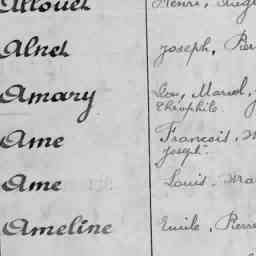 Allouet Henri,
Alnet Joseph,
Amary Léon, Marcel,
Théophile.
Ame François,
Joseph.
Ame Louis.
Ameline Emile, Pierre